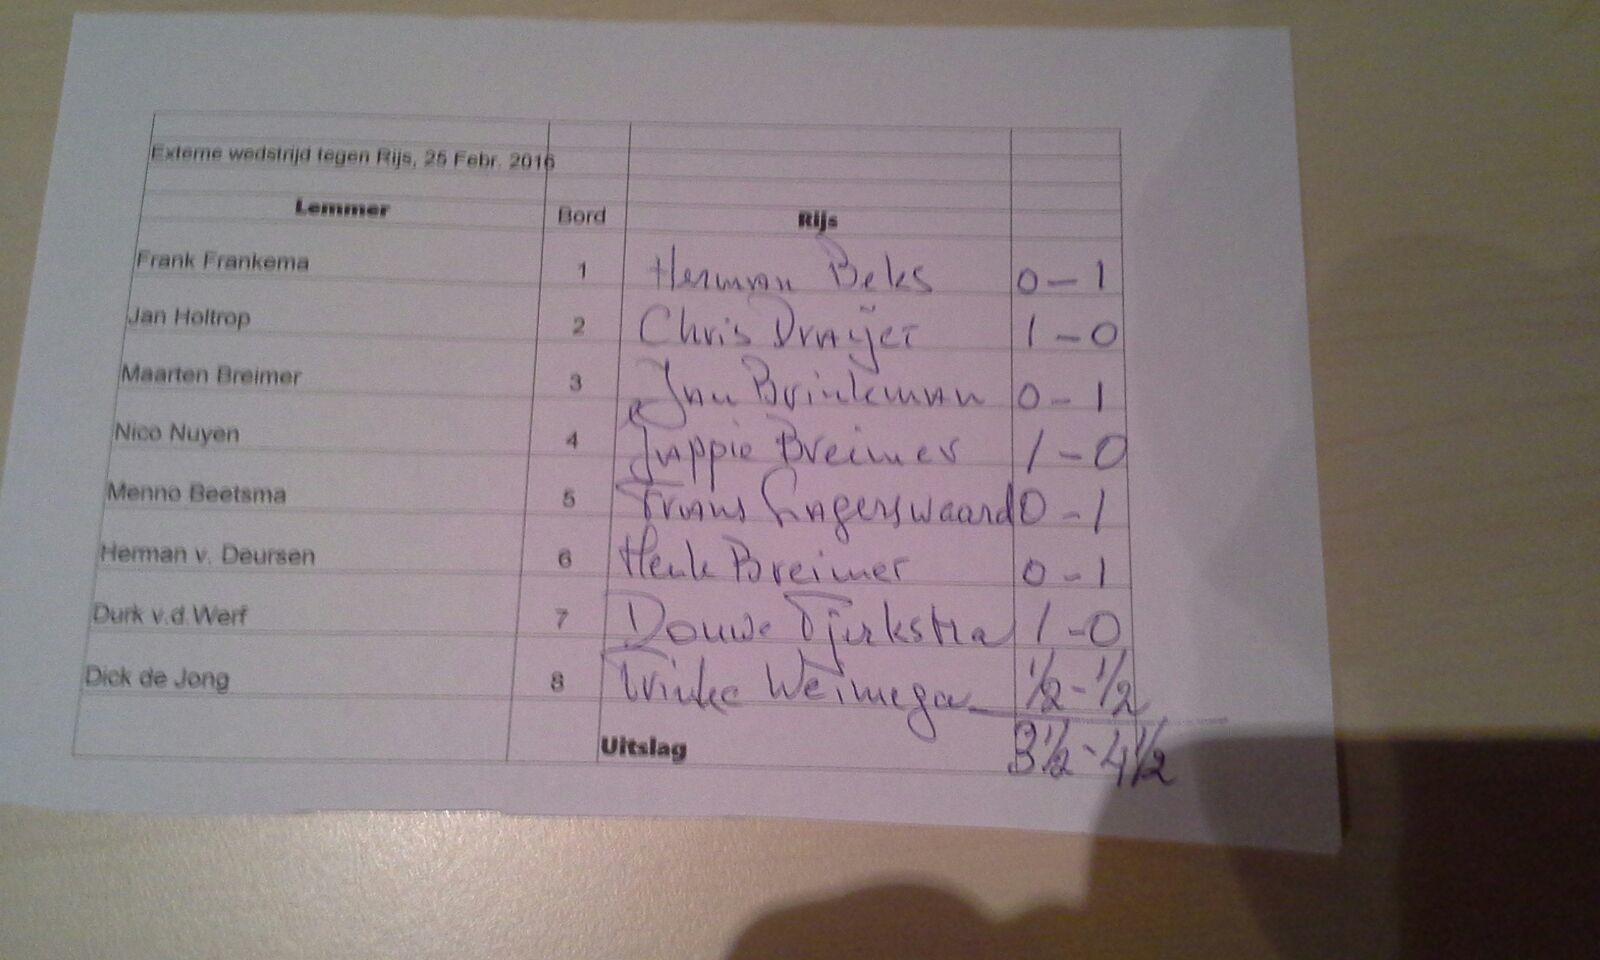 Externe wedstrijd tegen Rijs, 25 Febr. 2016
Lemmer Bord Rijs
Frank Frankema 1 Herman Beks 0 - 1
Jan Holtrop 2 Chris Draijer 1 - 0
Maarten Breimer 3 Jan Brinkman 0 - 1
Nico Nuyen 4 Jappie Breimer 1 - 0
Menno Beetsma 5 Frans 0 - 1
Herman v. Deursen 6 Henk Breimer 0 - 1
Durk v.d.Werf 7 Douwe Tjerkstra 1 - 0
Dick de Jong 8 ½ - ½
Uitslag 3½ - 4½